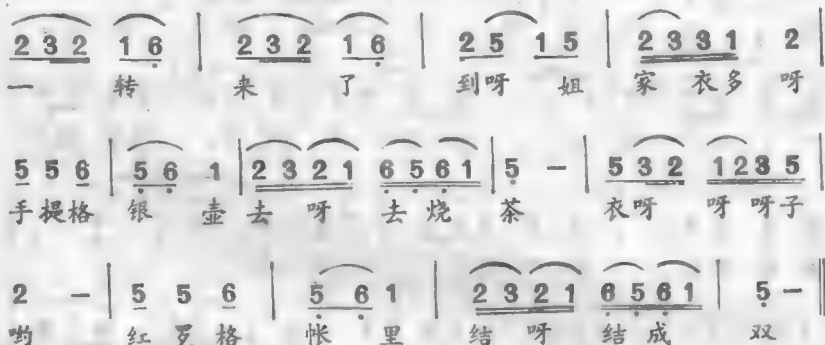 2 3 2 1 6 | 2 3 2 1 6 | 2 5 1 5 | 2 3 3 1 2 |
一 转 来 了 到呀 姐 家 衣多 呀
5 5 6 | 5 6 1 | 2 3 2 1 6 5 6 1 | 5 - | 5 3 2 1 2 3 5 |
手提格 银 壶 去 呀 去 烧 茶 衣呀 呀 呀子
2 - | 5 5 6 | 5 6 1 | 2 3 2 1 6 5 6 1 | 5 - ‖
哟 红 罗 格 帐 里 结 呀 结 成 双